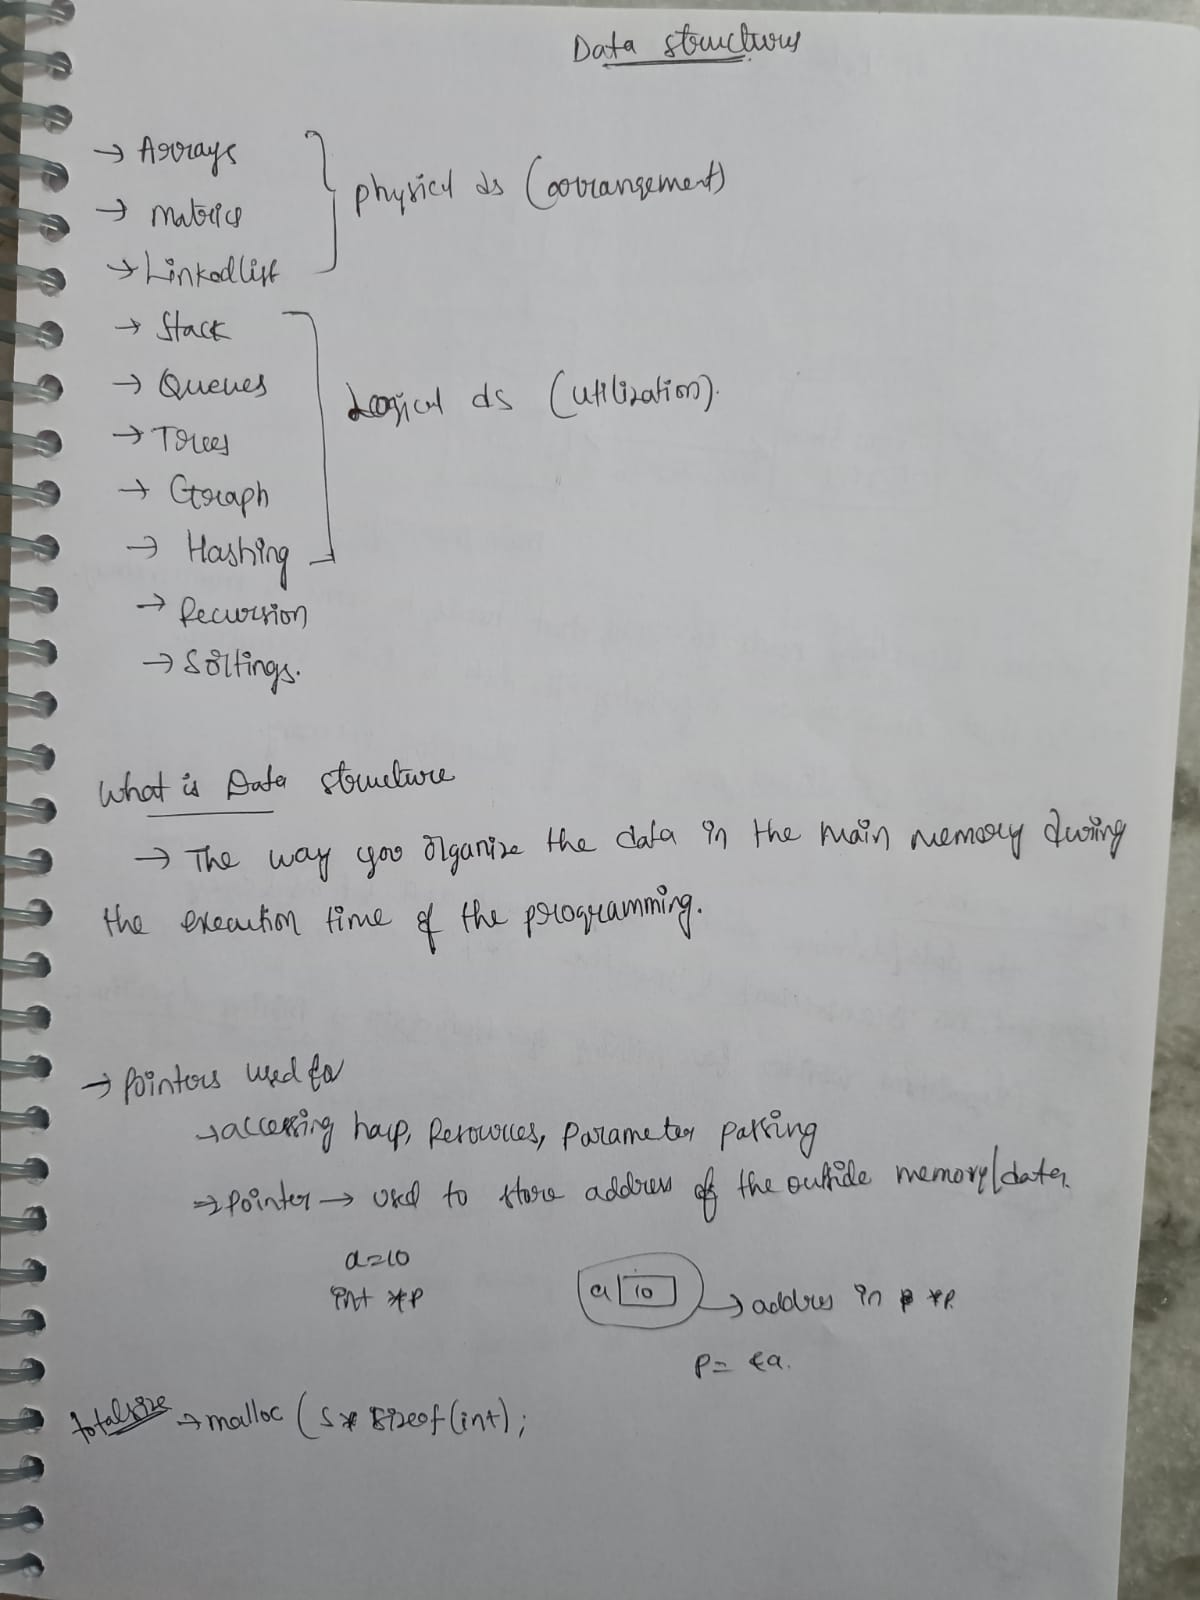 Data structures
→ Arrays
→ matrics
→ Linkedlist
physical ds (arrangement)
→ Stack
→ Queues
→ Trees
→ Graph
→ Hashing
Logical ds (utilization).
→ Recursion
→ Sortings.
What is Data structure
→ The way you organize the data in the main memory during
the execution time of the programming.
→ pointers used for
→ accessing heap, Resources, parameter passing
→ pointer → used to store address of the outside memory/data.
a=10
int *p
a 10 → addres in *p.
p= &a.
totalsize → malloc (5* sizeof(int);